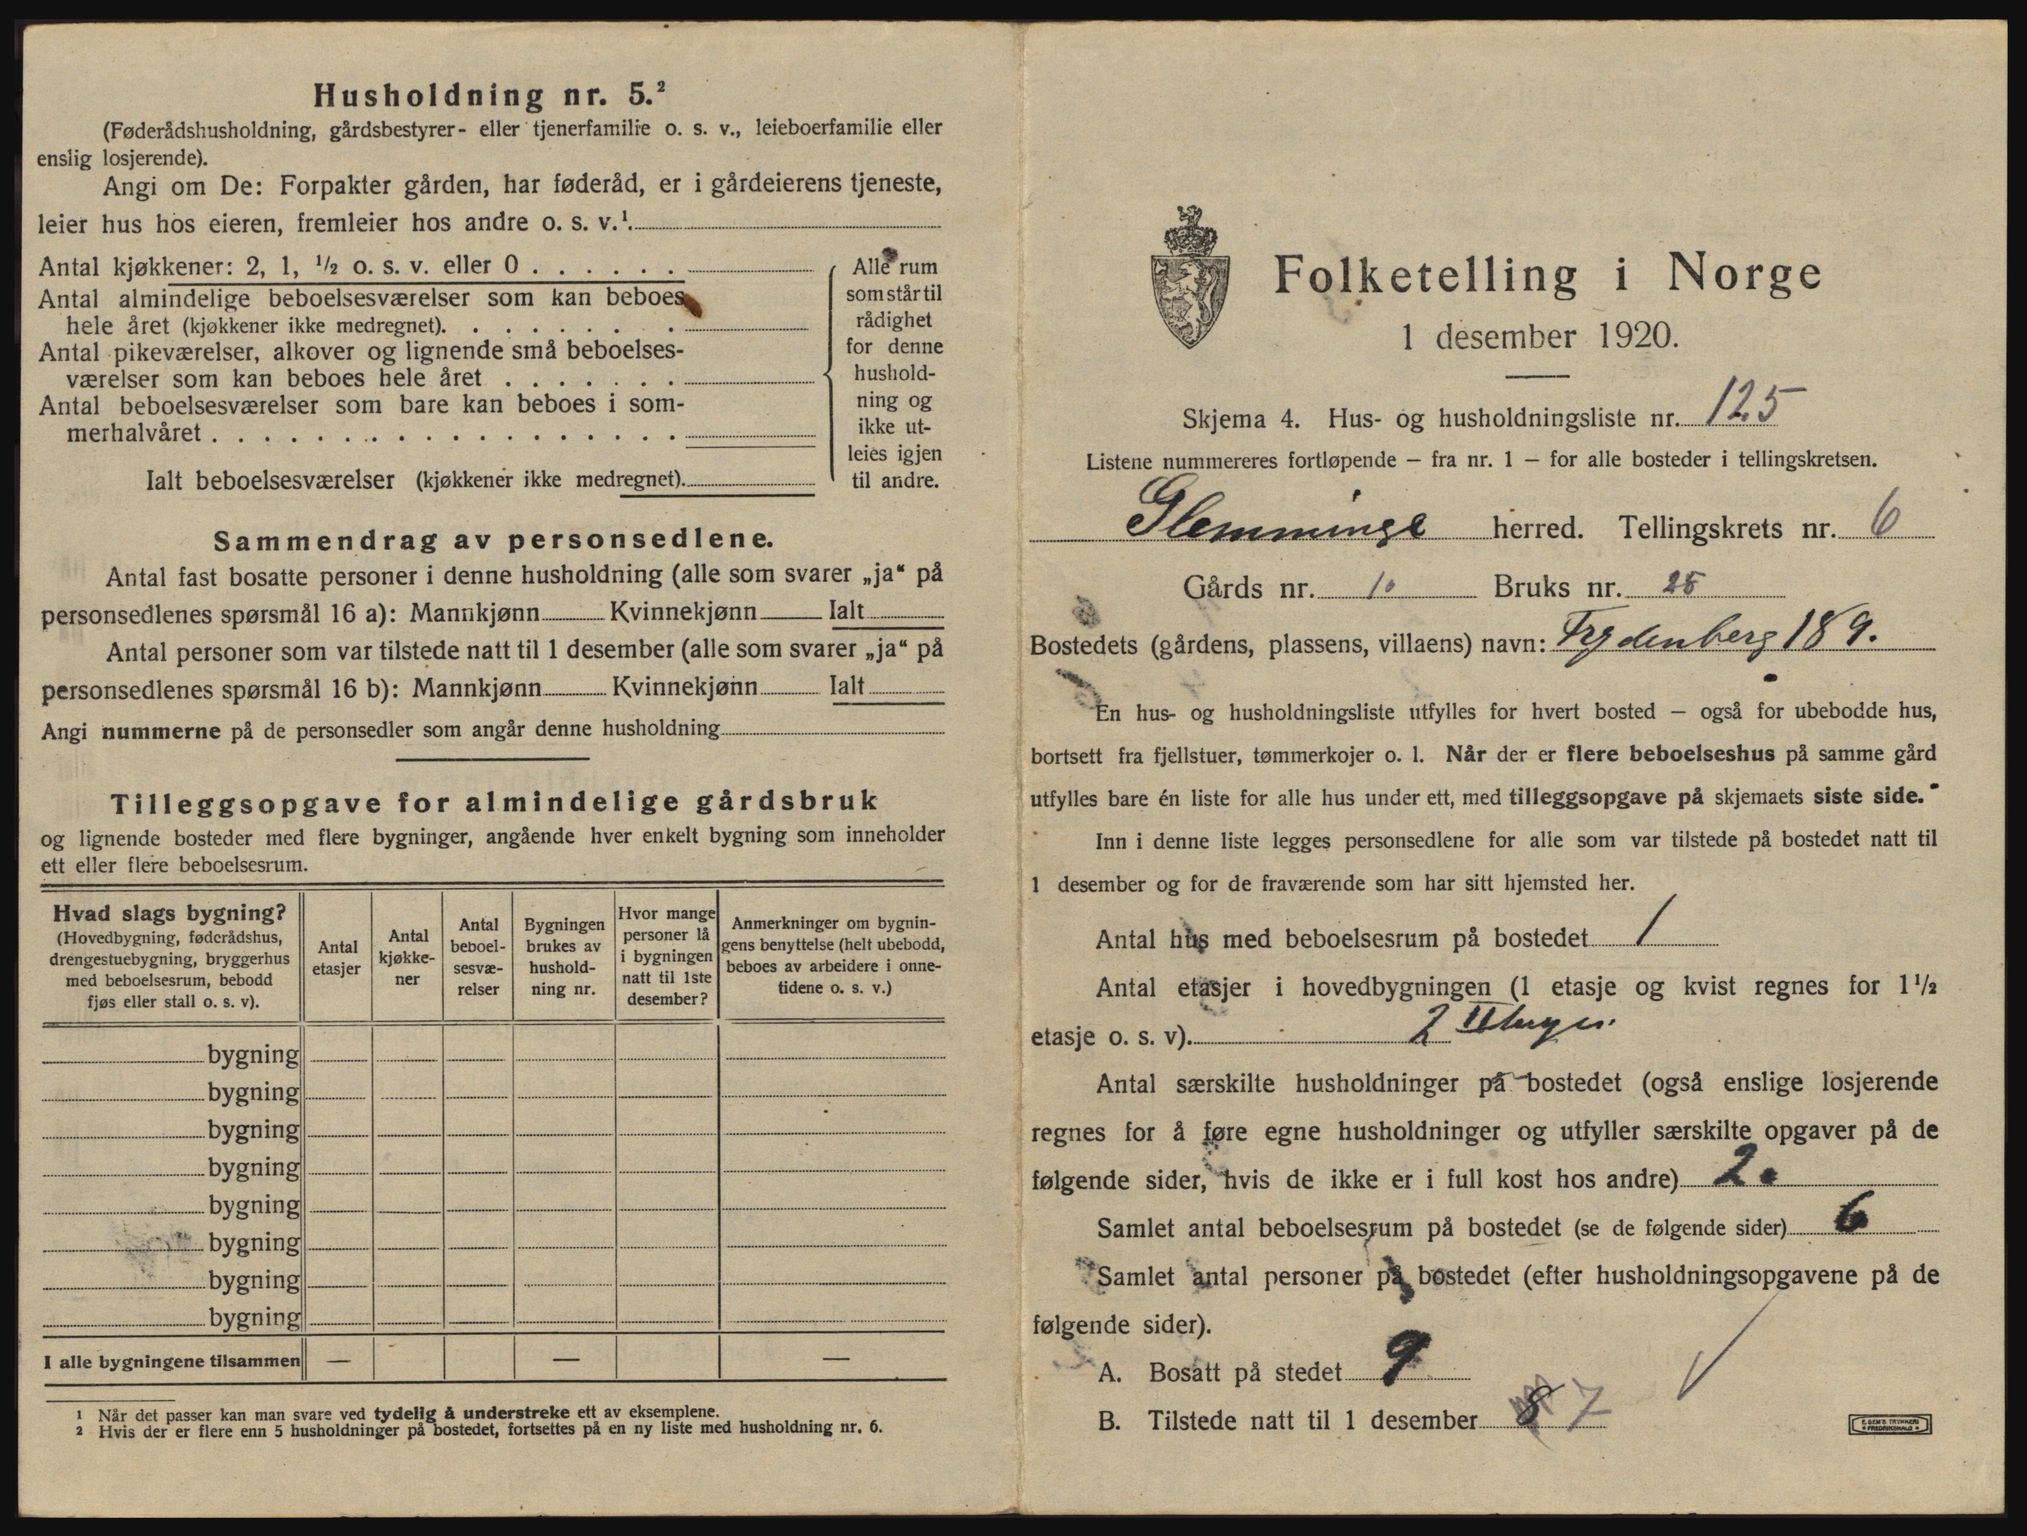 Husholdning nr. 5.²
(Føderådshusholdning, gårdsbestyrer- eller tjenerfamilie o. s. v., leieboerfamilie eller
enslig losjerende).
Angi om De: Forpakter gården, har føderåd, er i gårdeierens tjeneste,
leier hus hos eieren, fremleier hos andre o. s. v.¹.
Antal kjøkkener: 2, 1, ½ o. s. v. eller 0 . . . . . .
Antal almindelige beboelsesværelser som kan beboes
hele året (kjøkkener ikke medregnet). . . . . . . .
Antal pikeværelser, alkover og lignende små beboelses-
værelser som kan beboes hele året . . . . . . .
Antal beboelsesværelser som bare kan beboes i som-
merhalvåret . . . . . . . . . . . . . . . . . .
Ialt beboelsesværelser (kjøkkener ikke medregnet).
Alle rum
som står til
rådighet
for denne
hushold-
ning og
ikke ut-
leies igjen
til andre.
Sammendrag av personsedlene.
Antal fast bosatte personer i denne husholdning (alle som svarer „ja“ på
personsedlenes spørsmål 16 a): Mannkjønn Kvinnekjønn Ialt
Antal personer som var tilstede natt til 1 desember (alle som svarer „ja“ på
personsedlenes spørsmål 16 b): Mannkjønn Kvinnekjønn Ialt
Angi nummerne på de personsedler som angår denne husholdning
Tilleggsopgave for almindelige gårdsbruk
og lignende bosteder med flere bygninger, angående hver enkelt bygning som inneholder
ett eller flere beboelsesrum.
Hvad slags bygning?
(Hovedbygning, føderådshus,
drengestuebygning, bryggerhus
med beboelsesrum, bebodd
fjøs eller stall o. s. v).
Antal
etasjer
Antal
kjøkke-
ner
Antal
beboel-
sesvæ-
relser
Bygningen
brukes av
hushold-
ning nr.
Hvor mange
personer lå
i bygningen
natt til 1ste
desember?
Anmerkninger om bygnin-
gens benyttelse (helt ubebodd,
beboes av arbeidere i onne-
tidene o. s. v.)
bygning
bygning
bygning
bygning
bygning
bygning
bygning
bygning
I alle bygningene tilsammen — — —
¹ Når det passer kan man svare ved tydelig å understreke ett av eksemplene.
² Hvis der er flere enn 5 husholdninger på bostedet, fortsettes på en ny liste med husholdning nr. 6.
Folketelling i Norge
1 desember 1920.
Skjema 4. Hus- og husholdningsliste nr. 125
Listene nummereres fortløpende — fra nr. 1 — for alle bosteder i tellingskretsen.
Glemminge herred. Tellingskrets nr. 6
Gårds nr. 10 Bruks nr. 25
Bostedets (gårdens, plassens, villaens) navn: Frydenberg 189.
En hus- og husholdningsliste utfylles for hvert bosted — også for ubebodde hus,
bortsett fra fjellstuer, tømmerkojer o. l. Når der er flere beboelseshus på samme gård
utfylles bare én liste for alle hus under ett, med tilleggsopgave på skjemaets siste side.
Inn i denne liste legges personsedlene for alle som var tilstede på bostedet natt til
1 desember og for de fraværende som har sitt hjemsted her.
Antal hus med beboelsesrum på bostedet 1
Antal etasjer i hovedbygningen (1 etasje og kvist regnes for 1½
etasje o. s. v). 2
Antal særskilte husholdninger på bostedet (også enslige losjerende
regnes for å føre egne husholdninger og utfyller særskilte opgaver på de
følgende sider, hvis de ikke er i full kost hos andre) 2.
Samlet antal beboelsesrum på bostedet (se de følgende sider) 6
Samlet antal personer på bostedet (efter husholdningsopgavene på de
følgende sider).
A. Bosatt på stedet 9
B. Tilstede natt til 1 desember 8 7